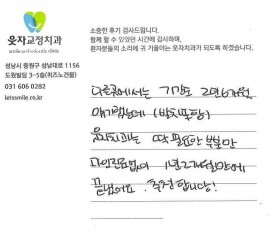 웃자교정치과
smile orthodontic clinic
성남시 중원구 성남대로 1156
도원빌딩 3~5층(퀴즈노건물)
031 606 0282
letssmile.co.kr
소중한 후기 감사드립니다.
함께 할 수 있었던 시간에 감사하며,
환자분들의 소리에 귀 기울이는 웃자치과가 되도록 하겠습니다.
다른곳에서는 기간도 2년6개월
얘기했는데 (발치포함)
웃자치과는 딱 필요한 부분만
과잉진료없이 1년 2개월만에
끝냈어요. 추천합니다!